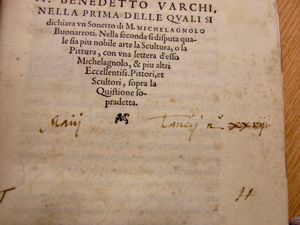 M. BENEDETTO VARCHI,
NELLA PRIMA DELLE QVALI SI
dichiara vn Sonetto di M. MICHELAGNOLO
Buonarroti. Nella seconda si disputa qua-
le sia piu nobile arte la Scultura, o la
Pittura, con vna lettera d'esso
Michelagnolo, & piu altri
Eccellentiss. Pittori, et
Scultori, sopra la
Quistione so-
pradetta.